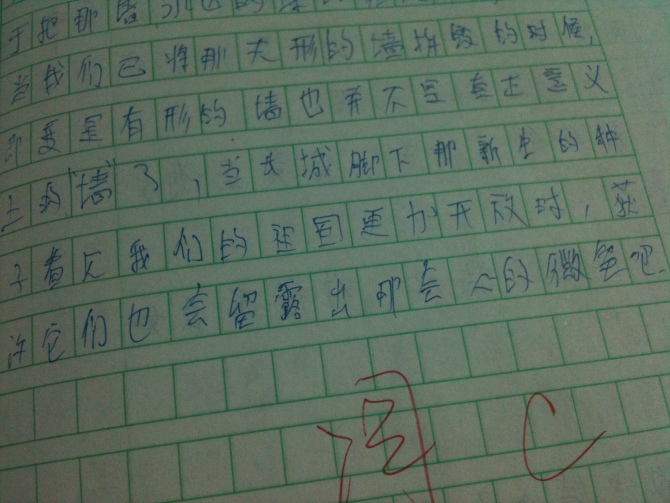 于把那
当我们已将那无形的墙拆毁的时候,
即要是有形的墙也并不是真正意义
上的“墙”了,当古城脚下那新生的种
子看见我们的祖国更加开放时,获
许它们也会留露出那会心的微笑吧
阅 C